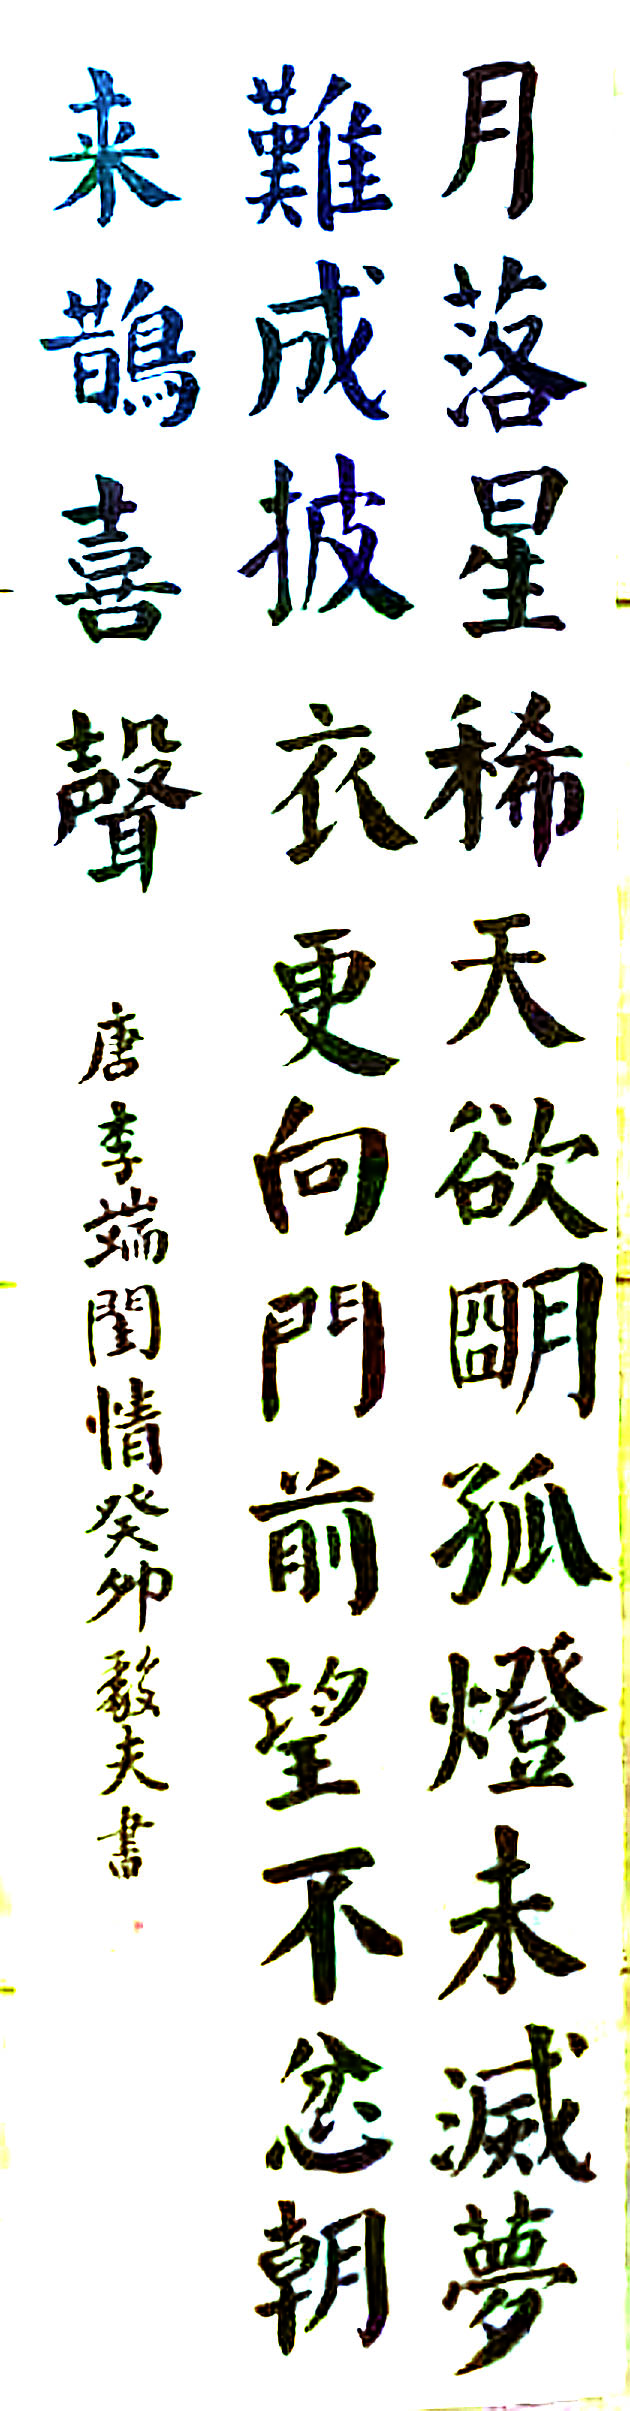 月落星稀天欲朙孤燈未滅夢
難成披衣更向門前望不忿朝
来鵲喜聲
唐李端閨情癸卯夫書